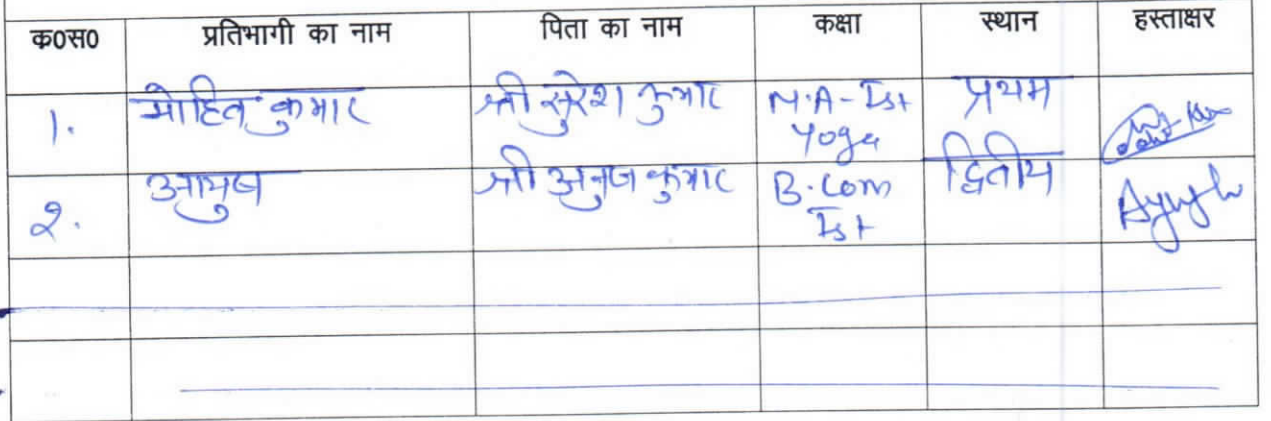 क०स० प्रतिभागी का नाम पिता का नाम कक्षा स्थान हस्ताक्षर
1. मोहित कुमार श्री सुरेश कुमार M.A - Ist प्रथम
Yoga
2. आयुष श्री अनुज कुमार B.Com द्वितीय Ayush
Ist